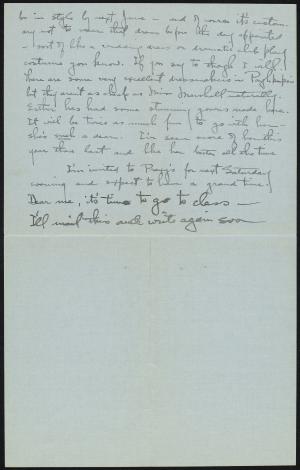 be in style by next June – and of course it's custom-
ary not to wear that dress before the day appointed
– sort of like a wedding dress or dramatic club play
costume you know. If you say to though I will.
There are some very excellent dressmakers in Poughkeepsie
but they aren't as cheap as Miss naturally.
Esther has had some stunning gowns made here.
It will be twice as much fun to go with her –
she's such a dear. I've seen more of her this
year than last and like her better all the time
I'm invited to for next Saturday
evening and expect to have a grand time!
Dear me, it's time to go to class –
I'll mail this and write again soon